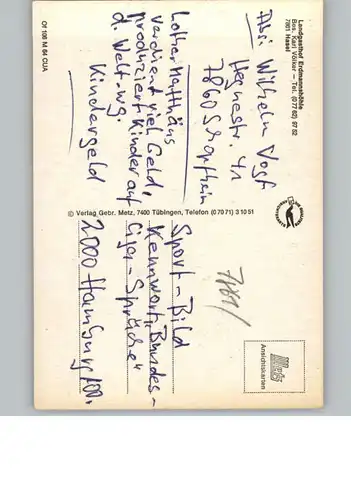 Landgasthof Erdmannshöhle
Bes. Karl Völker – Tel. (07762) 9752
7861 Hasel
Abs: Wilhelm Vogt
Hegnestr. 41
7860 Schopfheim
Lothar Matthäus
verdient viel Geld,
produziert Kinder auf
d. Welt wg.
Kindergeld
Of 106 M 64 CUA
© Verlag Gebr. Metz, 7400 Tübingen, Telefon (07071) 31051
7861/
Sport-Bild
Kennwort „Bundes-
Liga-Sprüche"
2000 Hamburg 100.
Metz
Ansichtskarten